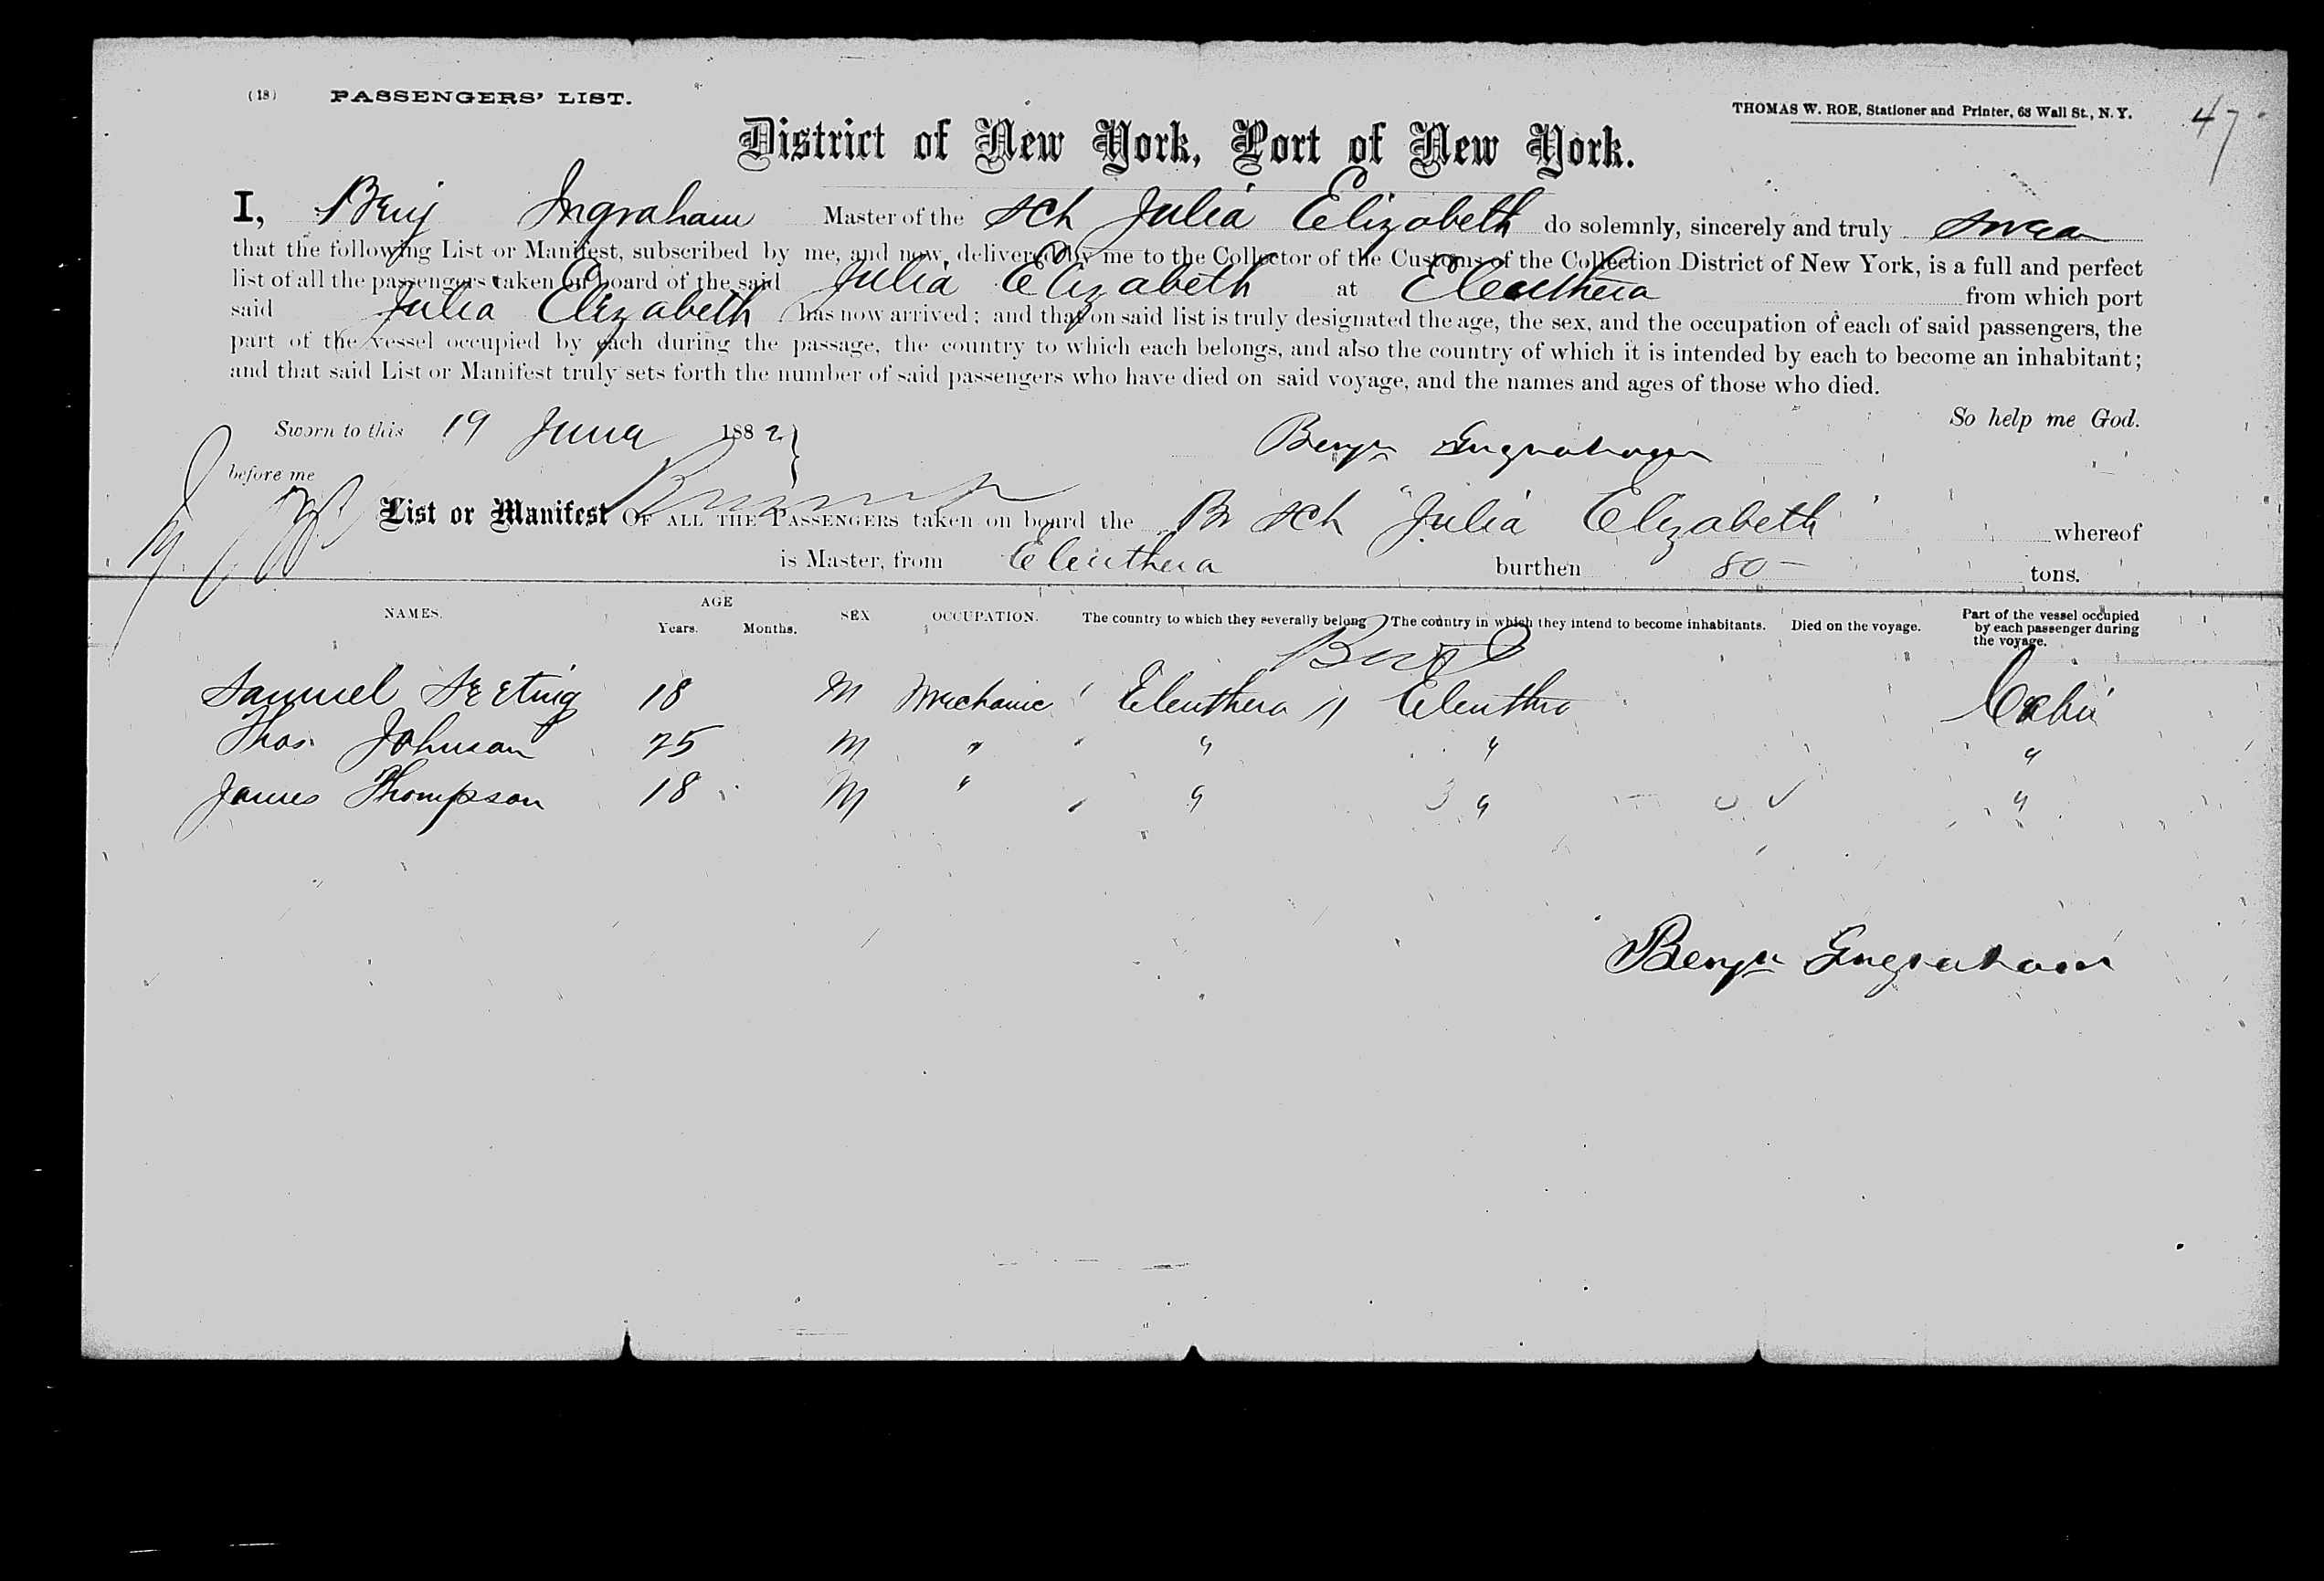 (18) PASSENGERS' LIST.
THOMAS W. ROE, Stationer and Printer, 63 Wall St., N. Y.
47
District of New York, Port of New York.
I, Benj Ingraham Master of the sch Julia Elizabeth do solemnly, sincerely and truly swear
that the following List or Manifest, subscribed by me, and now delivered by me to the Collector of the Customs of the Collection District of New York, is a full and perfect
list of all the passengers taken on board of the said Julia Elizabeth at Eleuthera from which port
said Julia Elizabeth has now arrived; and that on said list is truly designated the age, the sex, and the occupation of each of said passengers, the
part of the vessel occupied by each during the passage, the country to which each belongs, and also the country of which it is intended by each to become an inhabitant;
and that said List or Manifest truly sets forth the number of said passengers who have died on said voyage, and the names and ages of those who died.
So help me God.
Sworn to this 19 June 1882
Benjn Ingraham
before me
List or Manifest OF ALL THE PASSENGERS taken on board the Br sch "Julia Elizabeth" whereof
is Master, from Eleuthera burthen 80 — tons.
NAMES. AGE Years. Months. SEX OCCUPATION. The country to which they severally belong The country in which they intend to become inhabitants. Died on the voyage. Part of the vessel occupied by each passenger during the voyage.
Samuel 18 M Mechanic Eleuthera // Eleuthra Cabin
Thos. Johnson 25 M " " " "
James Thompson 18 M " " " "
Benjn Ingraham